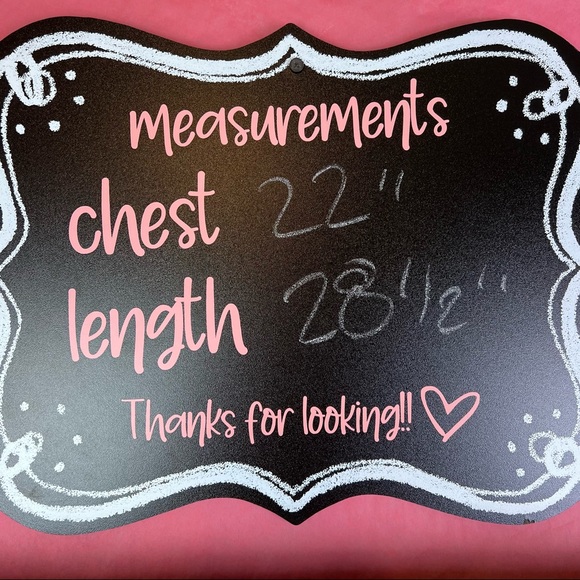 measurements
chest 22"
length 28 1/2"
Thanks for looking!!